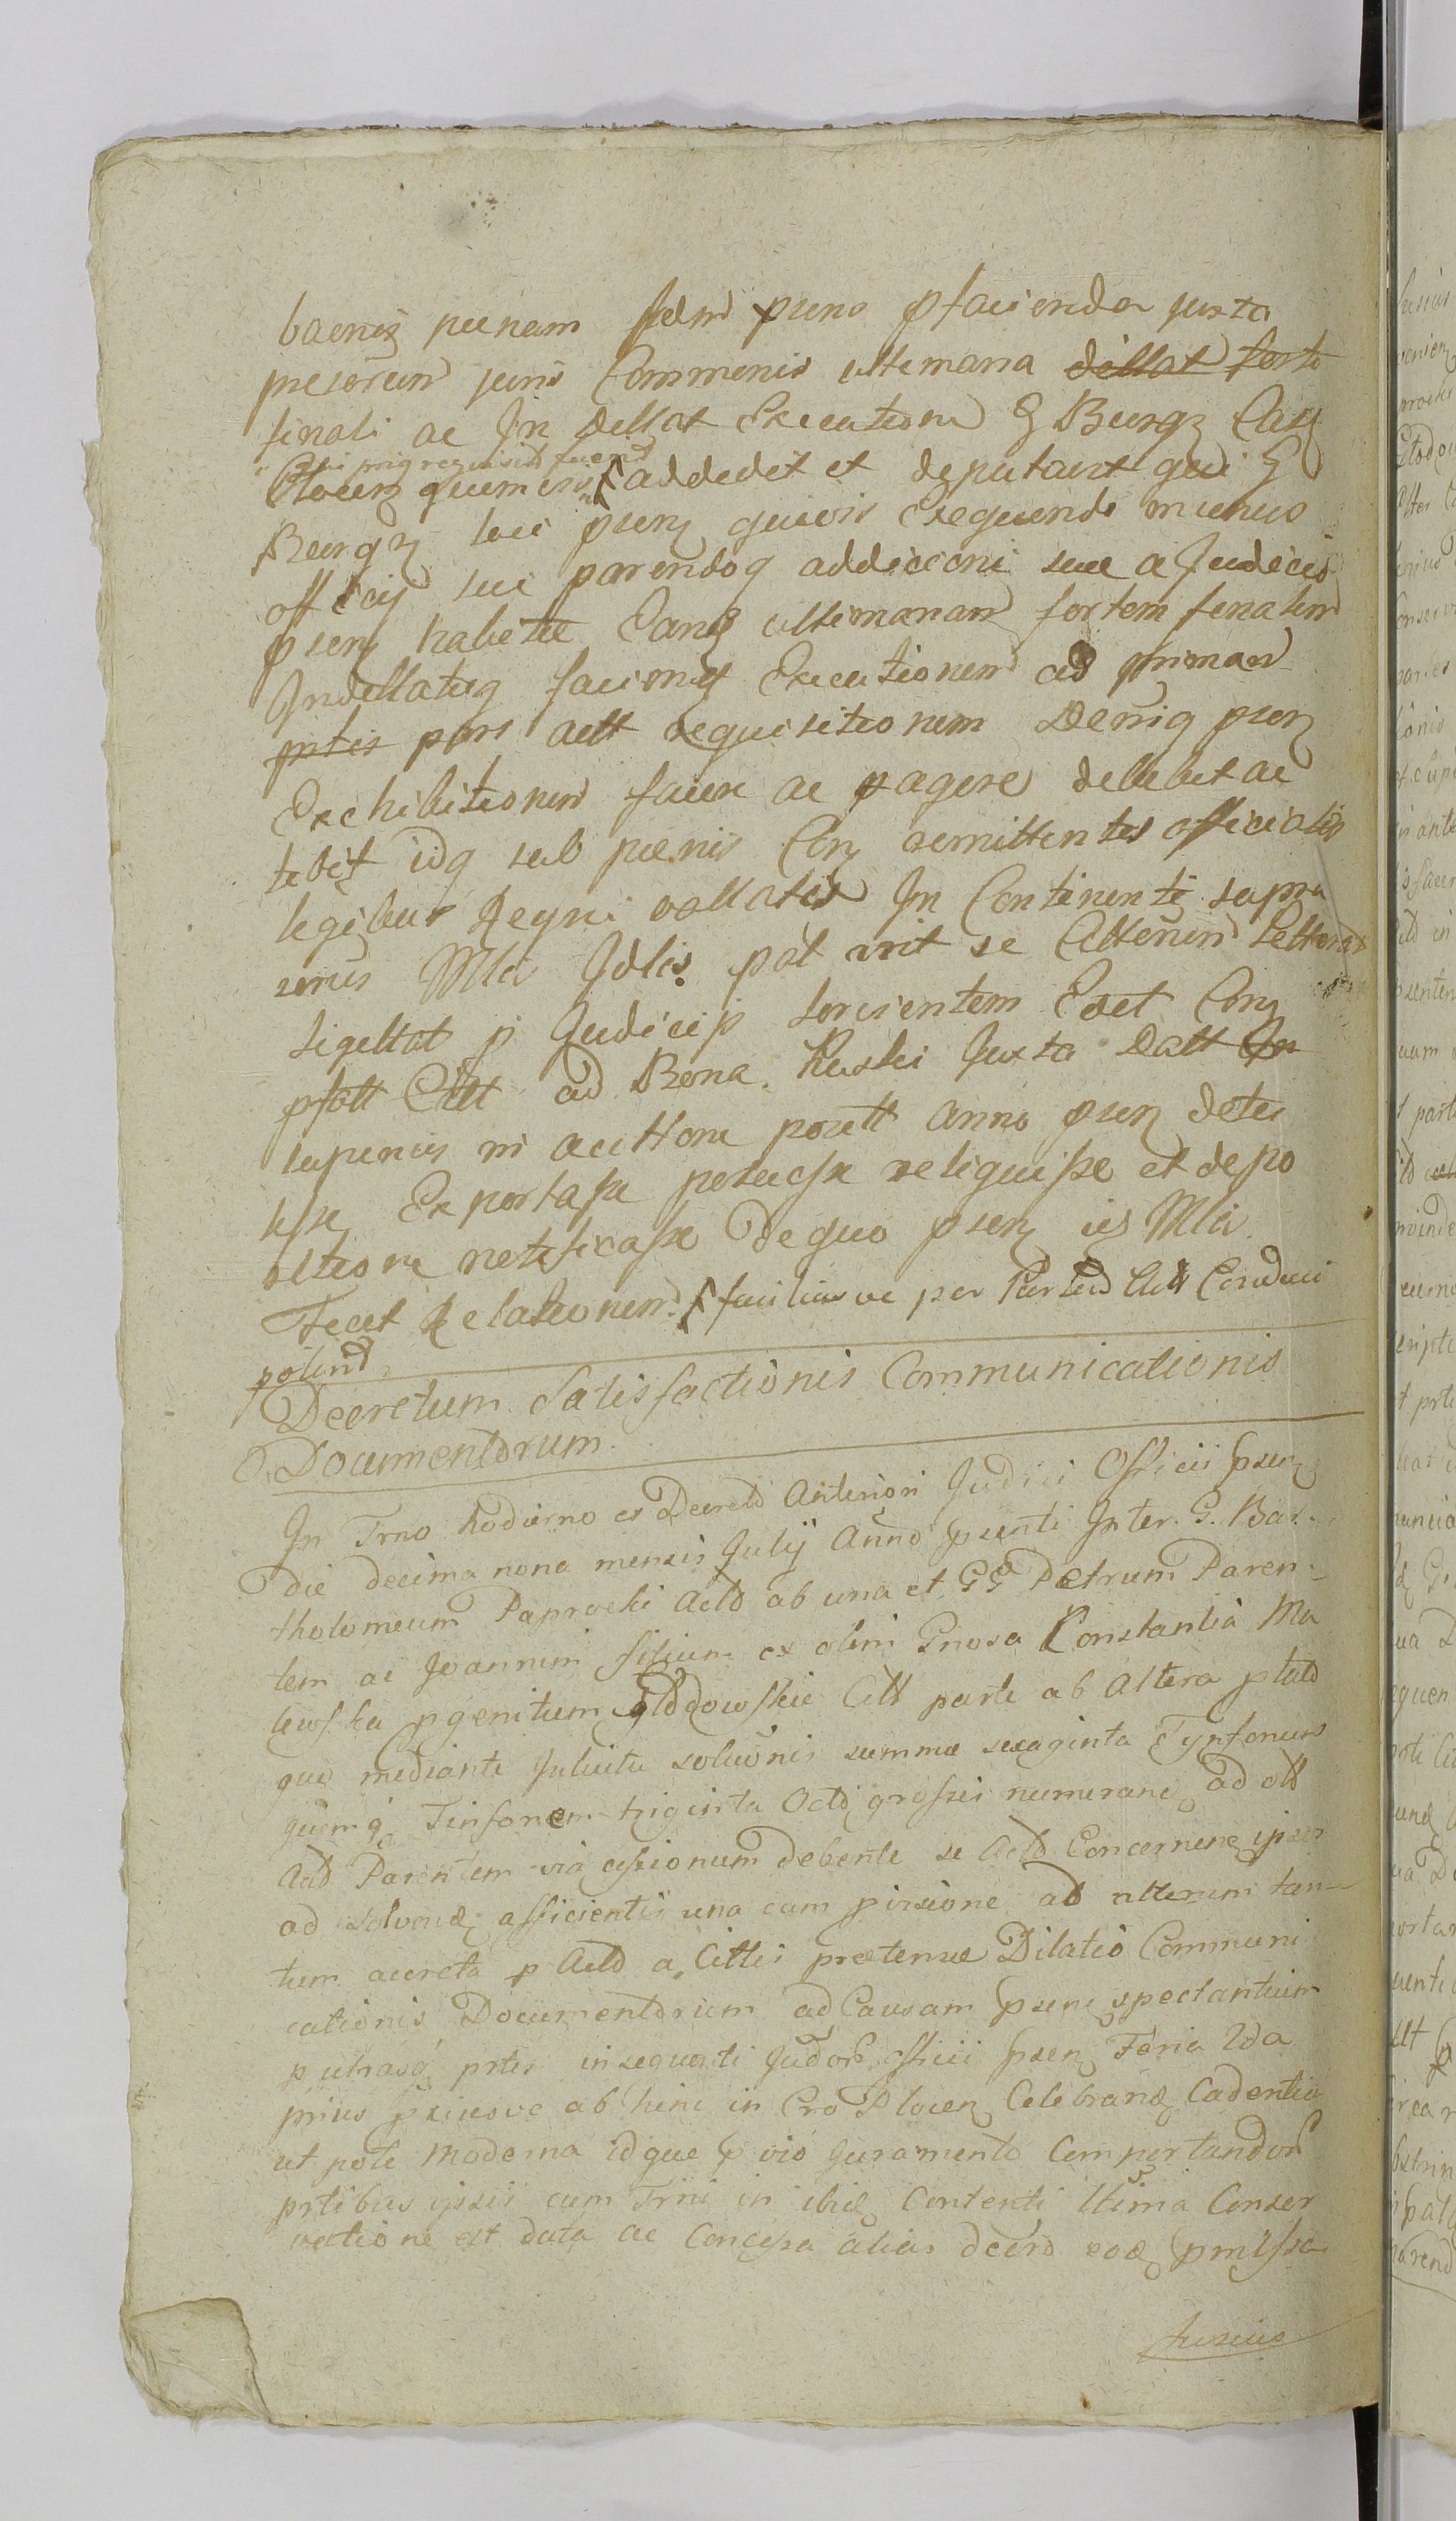 baenis penam fadm psens pfaciendo juxta
presorum juris Communis ultimaria dillat forti
finali ac In dellat Executione G Burg Cas
prig requisit fuerit
Plocen quemvis addedit et deputavit qui G
Burg loci psen quivis Exequendi munus
officij sui parendoq addiccioni suae a Judicio
psen habitae Eanq ultimariam fortem finalem
Indellatuq facienq Executionem ad primam
prtis pars actt requisitionem Denig psen
Exchibitionem facere ac pagere debebit ac
tebit idq sub penis Con remittentes officiales
legibus Regni vallatis In Continenti supra
Mla Jdlis pat vrit se Citteriem Litteris
sigillat p Judicij Exet Con
pfatt Citt ad Bona Ruski Juxta Datt In
superius in acctione positt anno psen detu
lisse Exportasse posuisse reliquisse et depo
oltione notificasse De quo psen is Mla
Fecit Relationem faciliusve per Partem Act Conduci
potind
Decretum Satisfactionis Communicationis
Documentorum.
In Trno hodierno ex Decreto Anteriori Judici Officii psen
die decima nona mensis Julij Anno psenti Inter G. Bar-
tholomeum Paprocki Actb ab una et GG Petrum Paren-
tem ac Joannem filium ex olim Gnosa Constantia Ma
lewska pgenitum Glodowskie Citt parte ab altera ptatb
quo mediante Intuitu soluonis summae sexaginta Tynfonum
quemq Tinfonem triginta Octo grossis numeranc ad ott
Actb Parentem via cessionum debente se Actb Concernenc ipsis
ad solvend afficientis una cum pvisione ad alterum tan-
tum accreta p Actb a Cittis praetensae Dilatio Communi
cationis Documentorum ad Causam psenc spectantium
p utrasq prtes in sequenti Judor officii psen Feria 2da
prius pxiusve ab hinc in Cro Plocen Celebrand Cadentia
ut pote Moderna idque pvio Juramento Comportandor
prtibus ipsis cum Trni in ibid Contenti ltima Conser
vatione est data ac Concessa alias decro eod pmissa
fusius